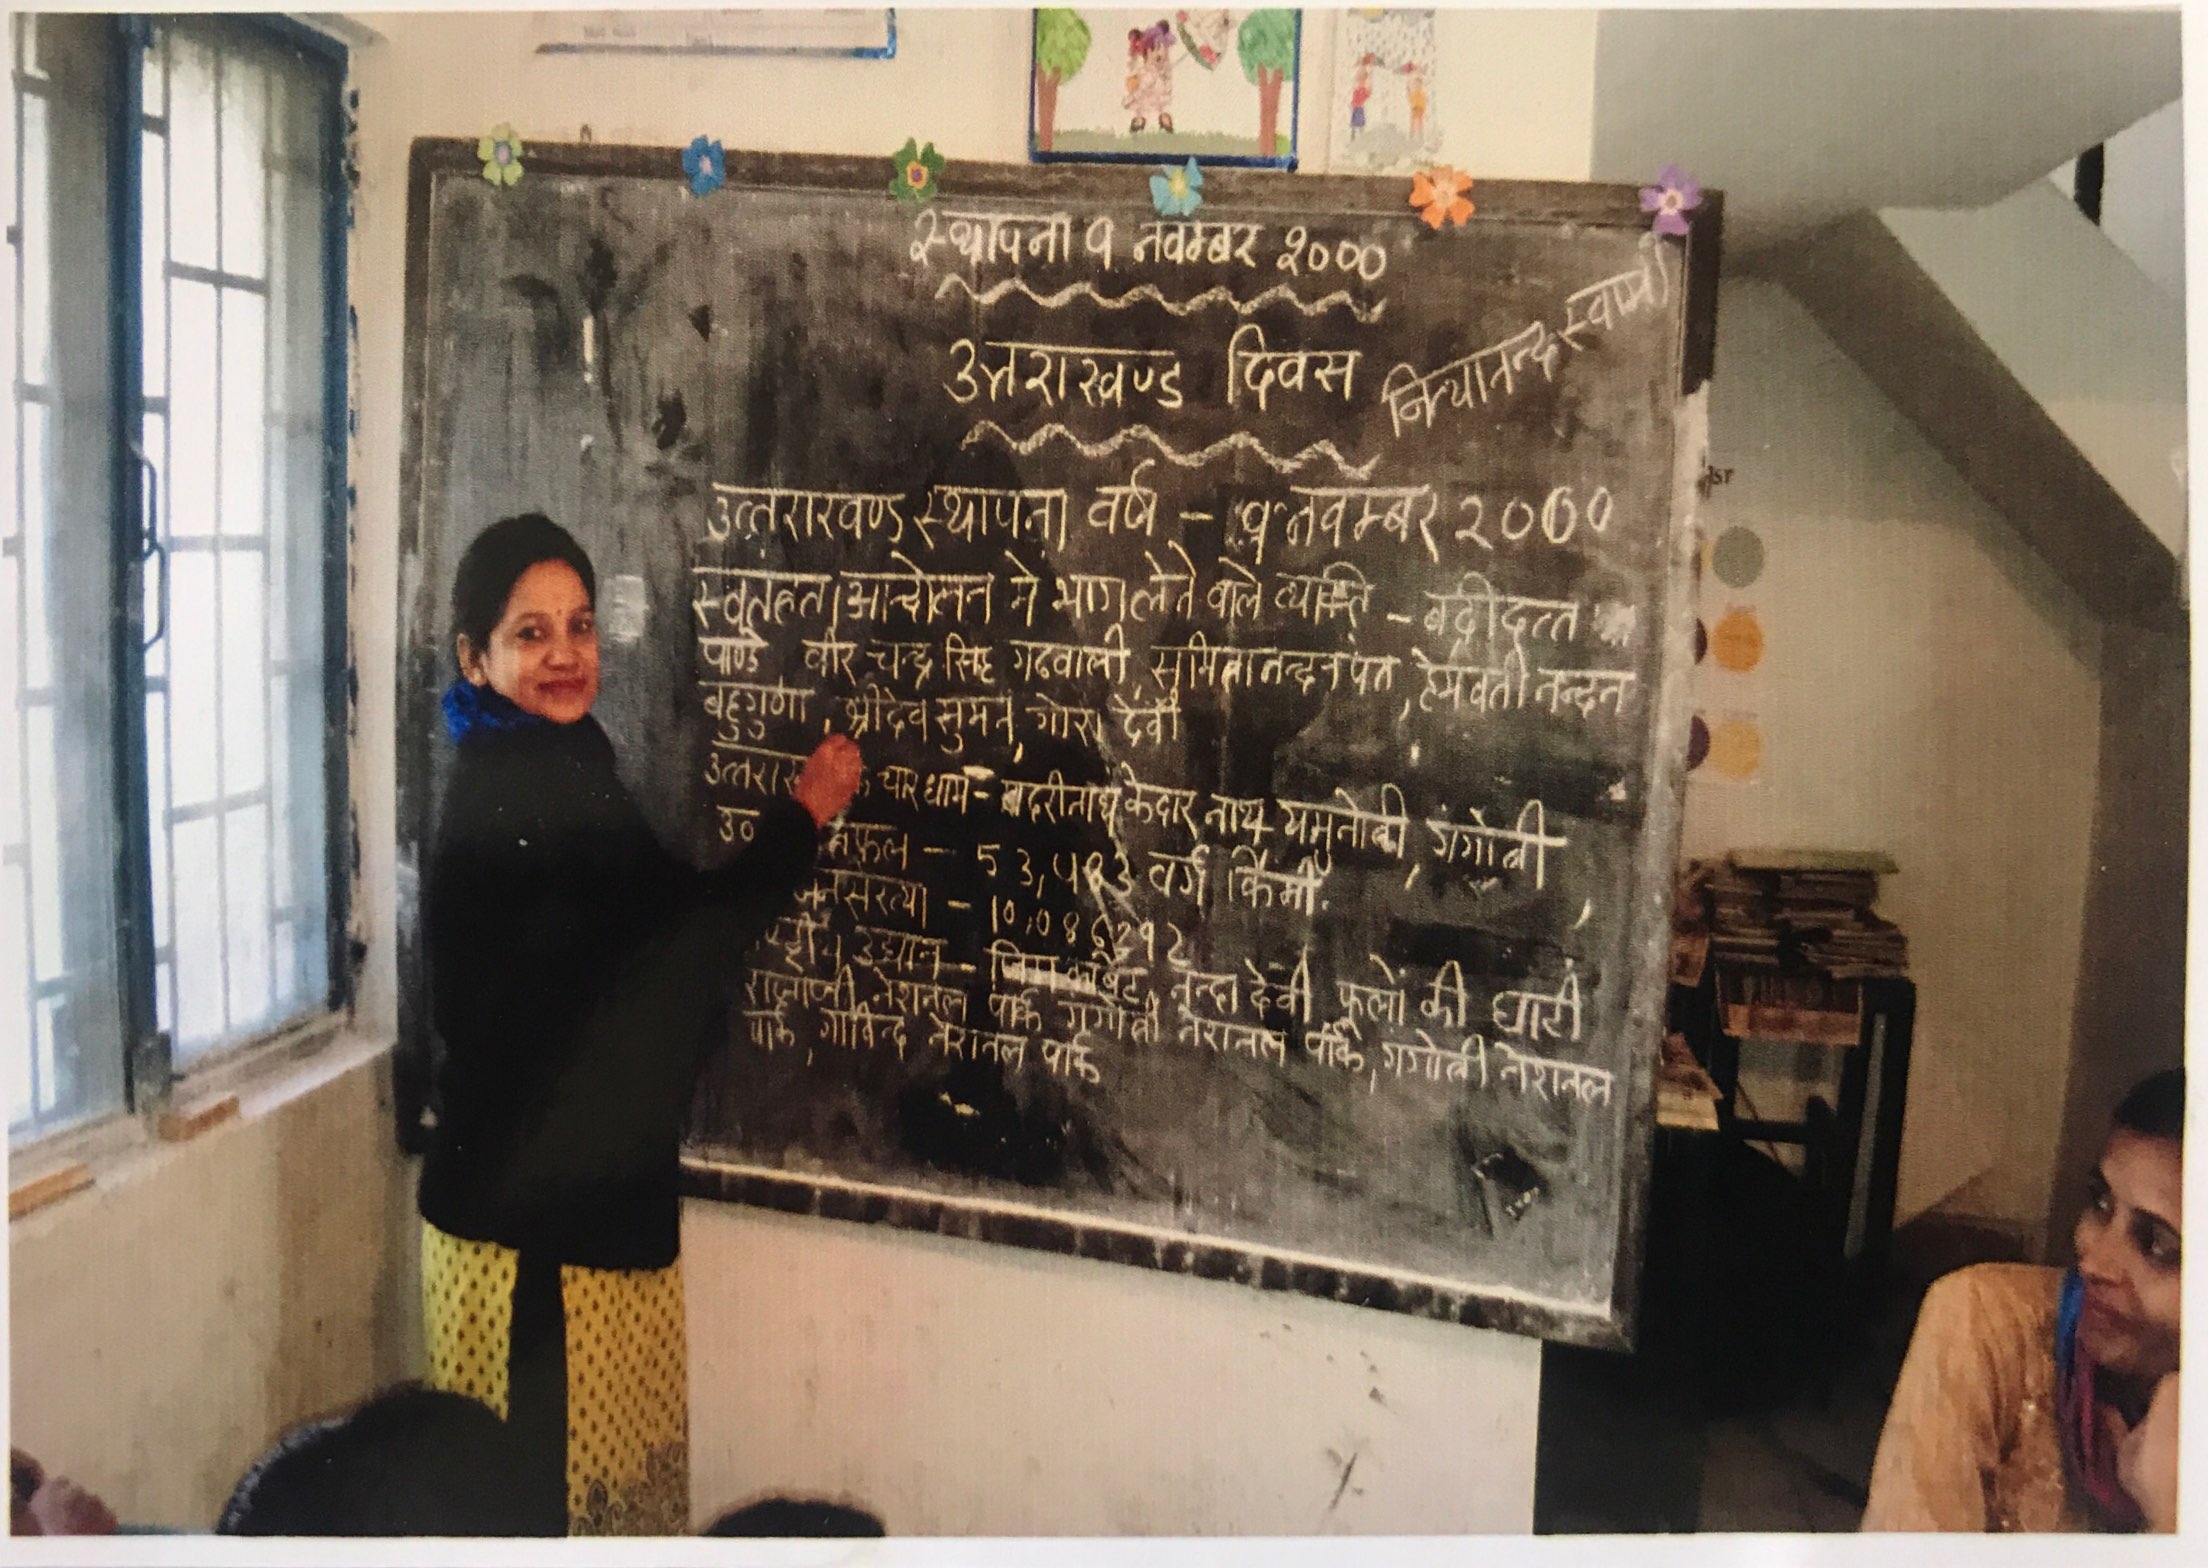 स्थापना 9 नवम्बर 2000
उत्तराखण्ड दिवस
नित्यानन्द स्वामी
उत्तराखण्ड स्थापना वर्ष - 9 नवम्बर 2000
आन्दोलन मे भाग लेने वाले व्यक्ति - बद्रीदत्त
पाण्डे वीर चन्द्र सिंह गढवाली, सुमित्रानन्दन पंत, हेमवती नन्दन
बहुगुणा, श्रीदेव सुमन, गौरा देवी
चार धाम - बदरीनाथ केदारनाथ यमुनोत्री, गंगोत्री,
उ० फल - 53,483 वर्ग किमी.
जनसंख्या - 10,086292
उद्यान - जिम कार्बेट, नन्दा देवी फूलों की घाटी
राजाजी नेशनल पार्क गंगोत्री नेशनल पार्क, गंगोत्री नेशनल
पार्क, गोविन्द नेशनल पार्क